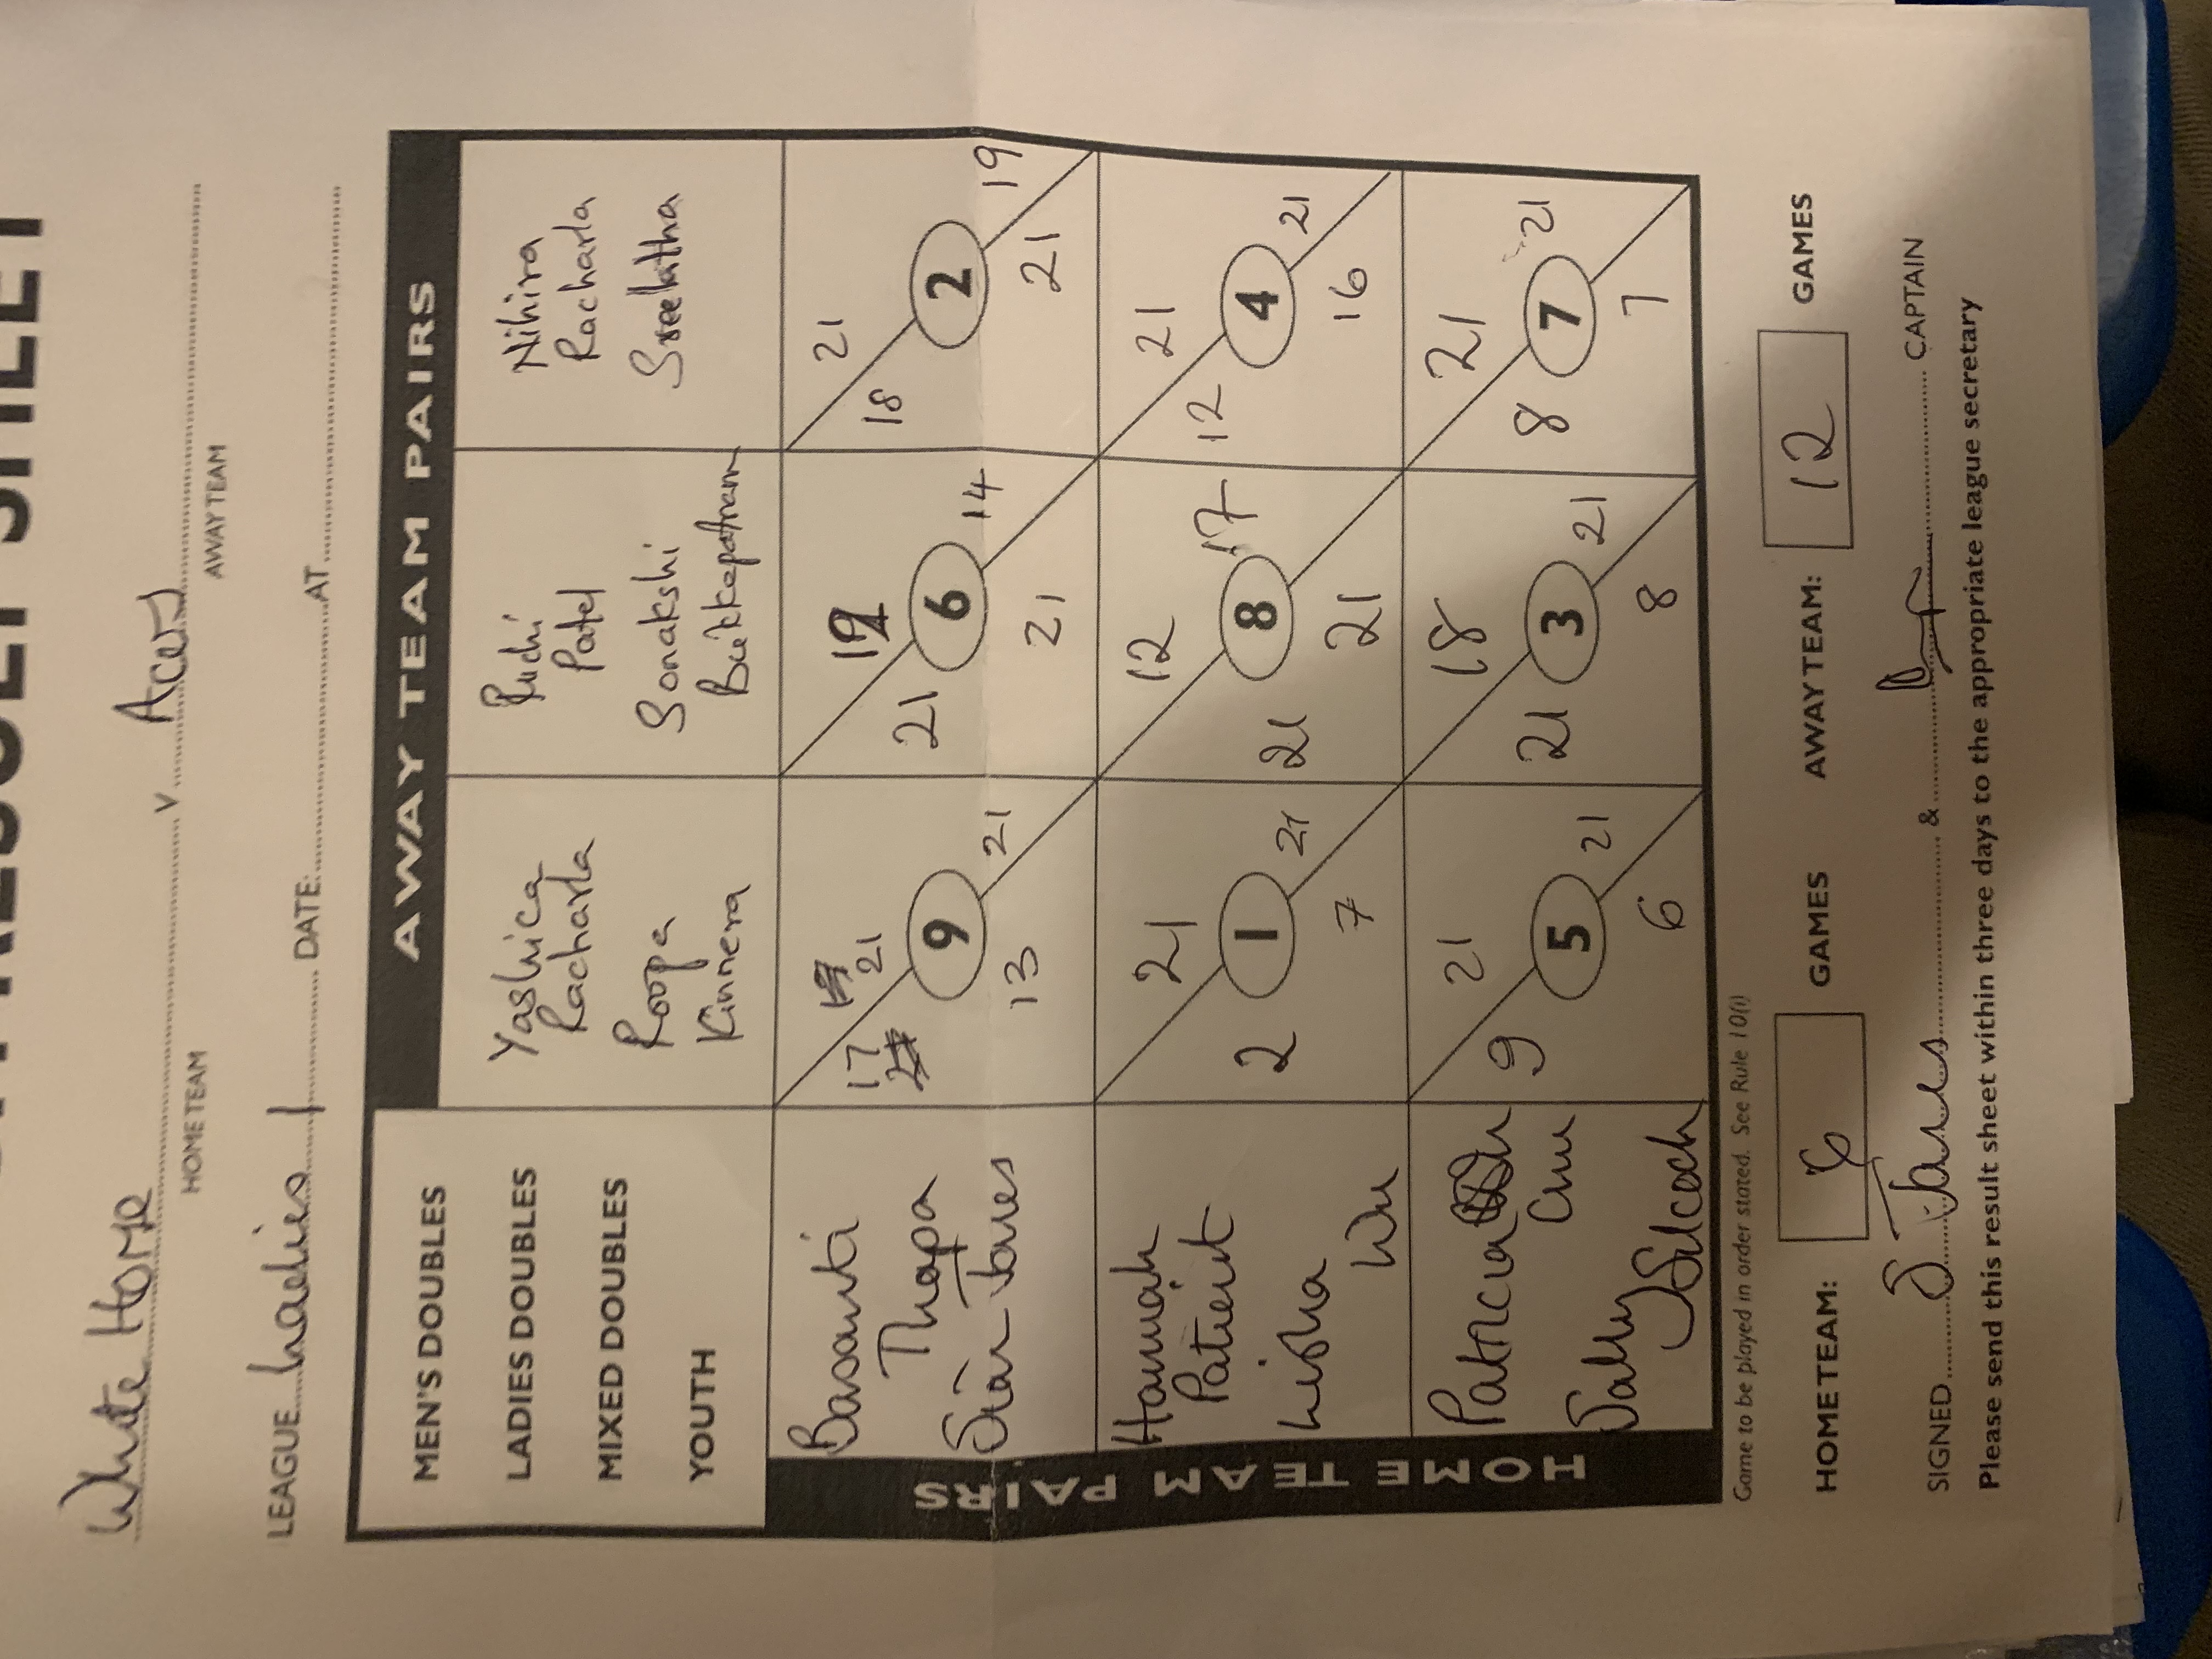 White Horse v Aces
HOME TEAM AWAY TEAM
LEAGUE Ladies 1 DATE: AT
AWAY TEAM PAIRS
MEN'S DOUBLES
LADIES DOUBLES
MIXED DOUBLES
YOUTH
Yashica
Racharla
Roopa
Kinnera
Ruchi
Patel
Sonakshi
Bukkapatnam
Nihira
Racharla
Sreelatha
HOME TEAM PAIRS
Basanta
Thapa
Sian Jones
17 21
9 21
13
21 19
6 14
21
18 21
2 19
21
Hannah
Patient
Lisha
Wu
2 21
1 21
7
21 12
8 17
21
12 21
4 21
16
Patricia
Sally Silcock
9 21
5 21
6
21 18
3 21
8
8 21
7 21
7
Game to be played in order stated. See Rule 10(i)
HOME TEAM: 6 GAMES AWAY TEAM: 12 GAMES
SIGNED S Jones & CAPTAIN
Please send this result sheet within three days to the appropriate league secretary